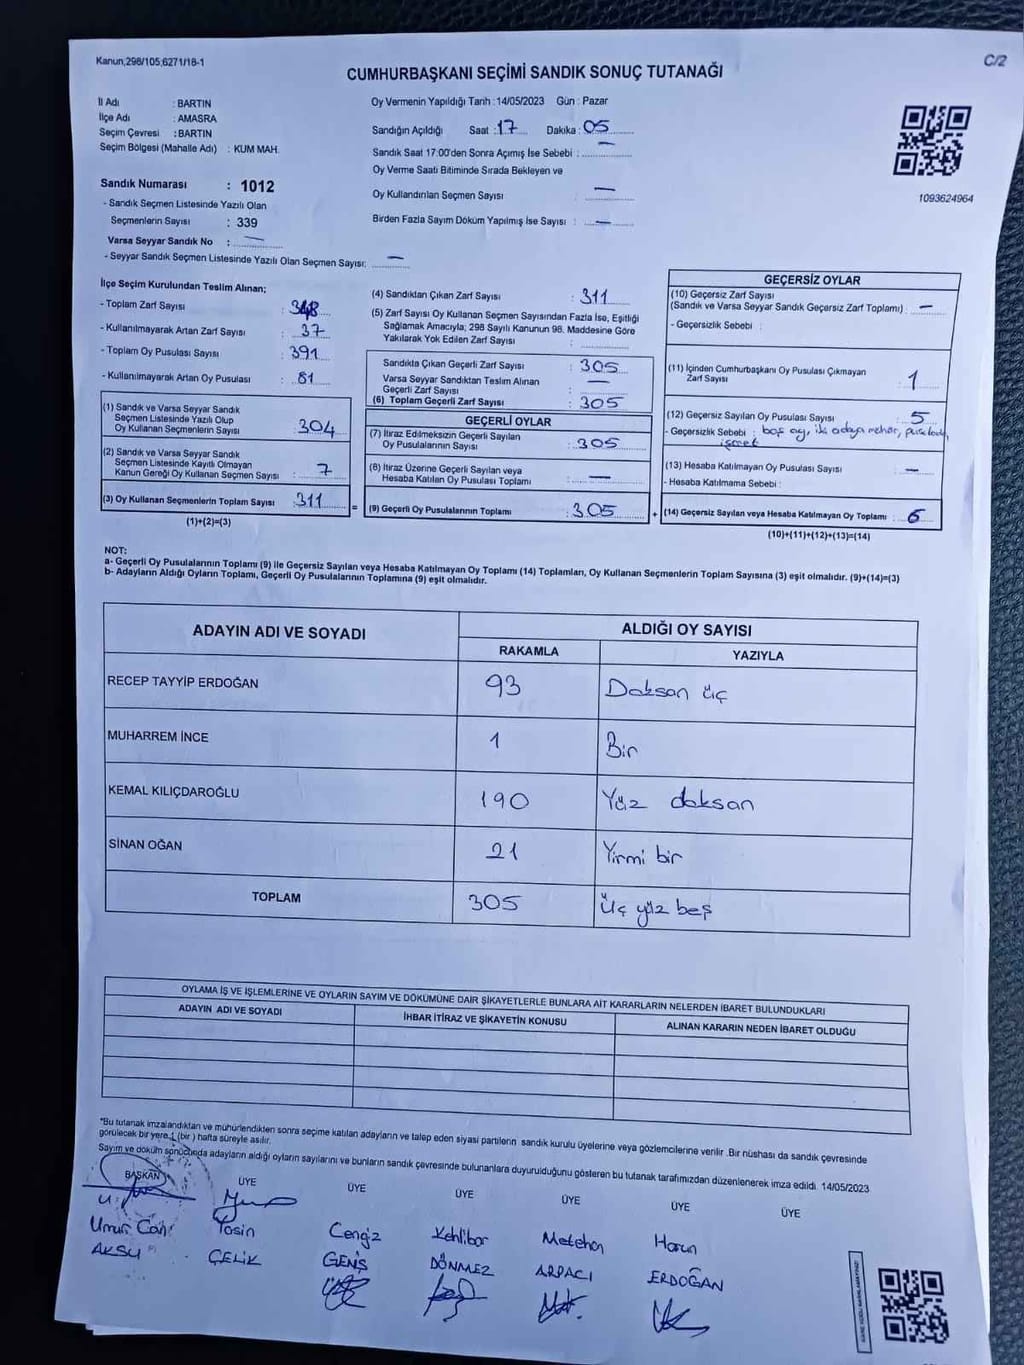 Kanun,298/105,6271/18-1
C/2
CUMHURBAŞKANI SEÇİMİ SANDIK SONUÇ TUTANAĞI
İl Adı : BARTIN
İlçe Adı : AMASRA
Seçim Çevresi : BARTIN
Seçim Bölgesi (Mahalle Adı) : KUM MAH.
Oy Vermenin Yapıldığı Tarih : 14/05/2023 Gün : Pazar
Sandığın Açıldığı Saat : 17 Dakika : 05
Sandık Saat 17:00'den Sonra Açılmış İse Sebebi : —
Oy Verme Saati Bitiminde Sırada Bekleyen ve
Oy Kullandırılan Seçmen Sayısı —
Birden Fazla Sayım Döküm Yapılmış İse Sayısı : —
1093624964
Sandık Numarası : 1012
- Sandık Seçmen Listesinde Yazılı Olan
Seçmenlerin Sayısı : 339
Varsa Seyyar Sandık No : —
- Seyyar Sandık Seçmen Listesinde Yazılı Olan Seçmen Sayısı: —
İlçe Seçim Kurulundan Teslim Alınan;
- Toplam Zarf Sayısı : 348
- Kullanılmayarak Artan Zarf Sayısı : 37
- Toplam Oy Pusulası Sayısı : 391
- Kullanılmayarak Artan Oy Pusulası : 81
(1) Sandık ve Varsa Seyyar Sandık
Seçmen Listesinde Yazılı Olup
Oy Kullanan Seçmenlerin Sayısı : 304
(2) Sandık ve Varsa Seyyar Sandık
Seçmen Listesinde Kayıtlı Olmayan
Kanun Gereği Oy Kullanan Seçmen Sayısı : 7
(3) Oy Kullanan Seçmenlerin Toplam Sayısı : 311 =
(1)+(2)=(3)
(4) Sandıktan Çıkan Zarf Sayısı : 311
(5) Zarf Sayısı Oy Kullanan Seçmen Sayısından Fazla İse, Eşitliği
Sağlamak Amacıyla; 298 Sayılı Kanunun 98. Maddesine Göre
Yakılarak Yok Edilen Zarf Sayısı :
Sandıkta Çıkan Geçerli Zarf Sayısı : 305
Varsa Seyyar Sandıktan Teslim Alınan
Geçerli Zarf Sayısı : —
(6) Toplam Geçerli Zarf Sayısı : 305
GEÇERLİ OYLAR
(7) İtiraz Edilmeksizin Geçerli Sayılan
Oy Pusulalarının Sayısı : 305
(8) İtiraz Üzerine Geçerli Sayılan veya
Hesaba Katılan Oy Pusulası Toplamı : —
(9) Geçerli Oy Pusulalarının Toplamı : 305 +
GEÇERSİZ OYLAR
(10) Geçersiz Zarf Sayısı
(Sandık ve Varsa Seyyar Sandık Geçersiz Zarf Toplamı) : —
- Geçersizlik Sebebi :
(11) İçinden Cumhurbaşkanı Oy Pusulası Çıkmayan
Zarf Sayısı : 1
(12) Geçersiz Sayılan Oy Pusulası Sayısı : 5
- Geçersizlik Sebebi : boş oy, iki adaya mühür,
(13) Hesaba Katılmayan Oy Pusulası Sayısı : —
- Hesaba Katılmama Sebebi :
(14) Geçersiz Sayılan veya Hesaba Katılmayan Oy Toplamı : 6
(10)+(11)+(12)+(13)=(14)
NOT:
a- Geçerli Oy Pusulalarının Toplamı (9) ile Geçersiz Sayılan veya Hesaba Katılmayan Oy Toplamı (14) Toplamları, Oy Kullanan Seçmenlerin Toplam Sayısına (3) eşit olmalıdır. (9)+(14)=(3)
b- Adayların Aldığı Oyların Toplamı, Geçerli Oy Pusulalarının Toplamına (9) eşit olmalıdır.
ADAYIN ADI VE SOYADI ALDIĞI OY SAYISI
RAKAMLA YAZIYLA
RECEP TAYYİP ERDOĞAN 93 Doksan üç
MUHARREM İNCE 1 Bir
KEMAL KILIÇDAROĞLU 190 Yüz doksan
SİNAN OĞAN 21 Yirmi bir
TOPLAM 305 Üç yüz beş
OYLAMA İŞ VE İŞLEMLERİNE VE OYLARIN SAYIM VE DÖKÜMÜNE DAİR ŞİKAYETLERLE BUNLARA AİT KARARLARIN NELERDEN İBARET BULUNDUKLARI
ADAYIN ADI VE SOYADI İHBAR İTİRAZ VE ŞİKAYETİN KONUSU ALINAN KARARIN NEDEN İBARET OLDUĞU
*Bu tutanak imzalandıktan ve mühürlendikten sonra seçime katılan adayların ve talep eden siyasi partilerin sandık kurulu üyelerine veya gözlemcilerine verilir .Bir nüshası da sandık çevresinde
görülecek bir yere 1 (bir ) hafta süreyle asılır.
Sayım ve döküm sonucunda adayların aldığı oyların sayılarını ve bunların sandık çevresinde bulunanlara duyurulduğunu gösteren bu tutanak tarafımızdan düzenlenerek imza edildi. 14/05/2023
BAŞKAN ÜYE ÜYE ÜYE ÜYE ÜYE ÜYE
Umur Can Yasin Cengiz Kehlibar Metehan Harun
AKSU ÇELİK GENİŞ DÖNMEZ ARPACI ERDOĞAN